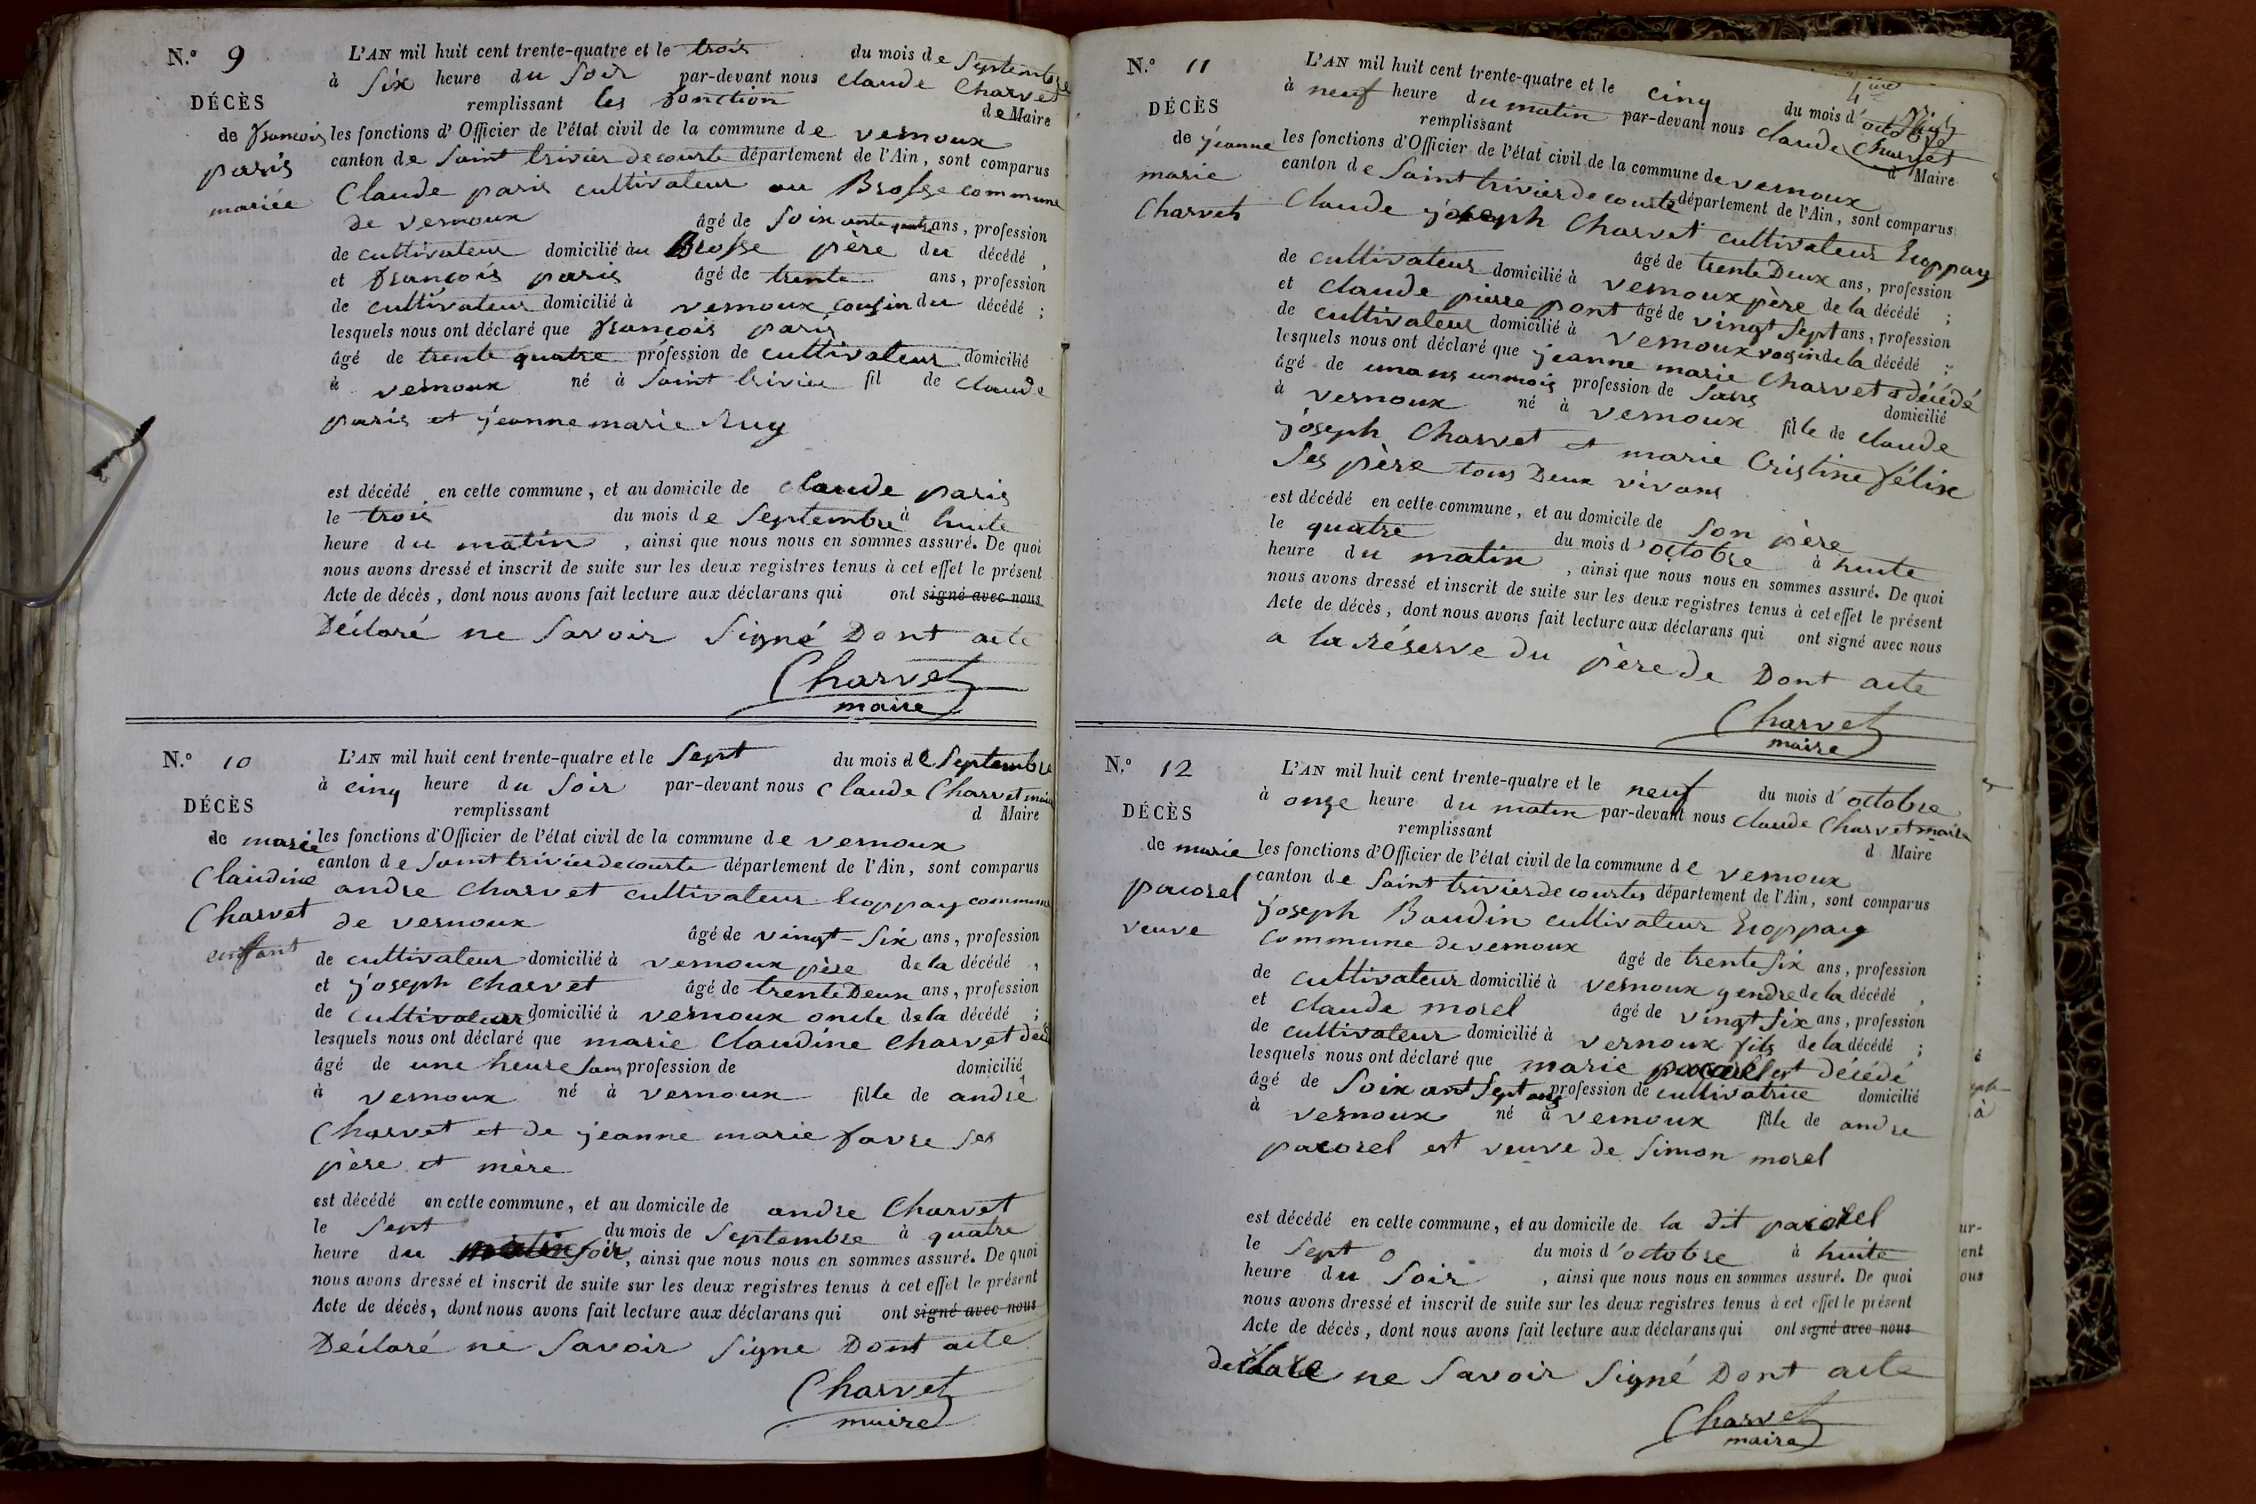 N.º 9
DÉCÈS
de françois
paris
mariée
L'AN mil huit cent trente-quatre et le trois du mois de Septembre
à Six heure du Soir par-devant nous claude Charvet
remplissant les fonction de Maire
les fonctions d'Officier de l'état civil de la commune de vernoux
canton de Saint trivier de courte département de l'Ain, sont comparus
Claude paris cultivateur au Brosse commune
de vernoux âgé de Soixante quatre ans, profession
de cultivateur domicilié au Brosse père du décédé,
et françois paris âgé de trente ans, profession
de cultivateur domicilié à vernoux cousin du décédé;
lesquels nous ont déclaré que françois paris
âgé de trente quatre profession de cultivateur domicilié
à vernoux né à Saint trivier fil de claude
paris et jeanne marie
est décédé en cette commune, et au domicile de claude paris
le trois du mois de Septembre à huite
heure du matin, ainsi que nous nous en sommes assuré. De quoi
nous avons dressé et inscrit de suite sur les deux registres tenus à cet effet le présent
Acte de décès, dont nous avons fait lecture aux déclarans qui ont signé avec nous
Déclaré ne Savoir Signé Dont acte
Charvet
maire
N.º 10
DÉCÈS
de marie
Claudine
Charvet
enfant
L'AN mil huit cent trente-quatre et le Sept du mois de Septembre
à cinq heure du Soir par-devant nous Claude Charvet maire
remplissant d Maire
les fonctions d'Officier de l'état civil de la commune de vernoux
canton de Saint trivier de courte département de l'Ain, sont comparus
andre Charvet cultivateur Eroppay commune
de vernoux âgé de vingt-Six ans, profession
de cultivateur domicilié à vernoux père de la décédé,
et joseph Charvet âgé de trente Deux ans, profession
de cultivateur domicilié à vernoux oncle de la décédé;
lesquels nous ont déclaré que marie Claudine Charvet
âgé de une heure Sans profession de domicilié
à vernoux né à vernoux fille de andre
Charvet et de jeanne marie favre Ses
père et mère
est décédé en cette commune, et au domicile de andre Charvet
le Sept du mois de Septembre à quatre
heure du matin Soir, ainsi que nous nous en sommes assuré. De quoi
nous avons dressé et inscrit de suite sur les deux registres tenus à cet effet le présent
Acte de décès, dont nous avons fait lecture aux déclarans qui ont signé avec nous
Déclaré ne Savoir Signe Dont acte
Charvet
maire
N.º 11
DÉCÈS
de jeanne
marie
Charvet
L'AN mil huit cent trente-quatre et le cinq du mois d'octobre
à neuf heure du matin par-devant nous Claude Charvet
remplissant d Maire
les fonctions d'Officier de l'état civil de la commune de vernoux
canton de Saint trivier de courte département de l'Ain, sont comparus
Claude joseph Charvet cultivateur Eroppay
âgé de trente Deux ans, profession
de cultivateur domicilié à vernoux père de la décédé;
et claude pierre pont âgé de vingt Sept ans, profession
de cultivateur domicilié à vernoux voisin de la décédé;
lesquels nous ont déclaré que jeanne marie Charvet a décédé
âgé de un ans un mois profession de Sans domicilié
à vernoux né à vernoux fille de claude
joseph Charvet et marie Cristine félix
Ses père tous Deux vivans
est décédé en cette commune, et au domicile de Son père
le quatre du mois d'octobre à huite
heure du matin, ainsi que nous nous en sommes assuré. De quoi
nous avons dressé et inscrit de suite sur les deux registres tenus à cet effet le présent
Acte de décès, dont nous avons fait lecture aux déclarans qui ont signé avec nous
a la Réserve du père de Dont acte
Charvet
maire
N.º 12
DÉCÈS
de marie
pacorel
veuve
L'AN mil huit cent trente-quatre et le neuf du mois d'octobre
à onze heure du matin par-devant nous Claude Charvet maire
remplissant d Maire
les fonctions d'Officier de l'état civil de la commune de vernoux
canton de Saint trivier de courtes département de l'Ain, sont comparus
joseph Baudin cultivateur Eroppay
commune de vernoux âgé de trente Six ans, profession
de cultivateur domicilié à vernoux gendre de la décédé,
et claude morel âgé de vingt Six ans, profession
de cultivateur domicilié à vernoux fils de la décédé;
lesquels nous ont déclaré que marie pacorel est décédé
âgé de Soixant Sept ans profession de cultivatrice domicilié
à vernoux né à vernoux fille de andre
pacorel est veuve de Simon morel
est décédé en cette commune, et au domicile de la dit pacorel
le Sept du mois d'octobre à huite
heure du Soir, ainsi que nous nous en sommes assuré. De quoi
nous avons dressé et inscrit de suite sur les deux registres tenus à cet effet le présent
Acte de décès, dont nous avons fait lecture aux déclarans qui ont signé avec nous
declare ne Savoir Signé Dont acte
Charvet
maire